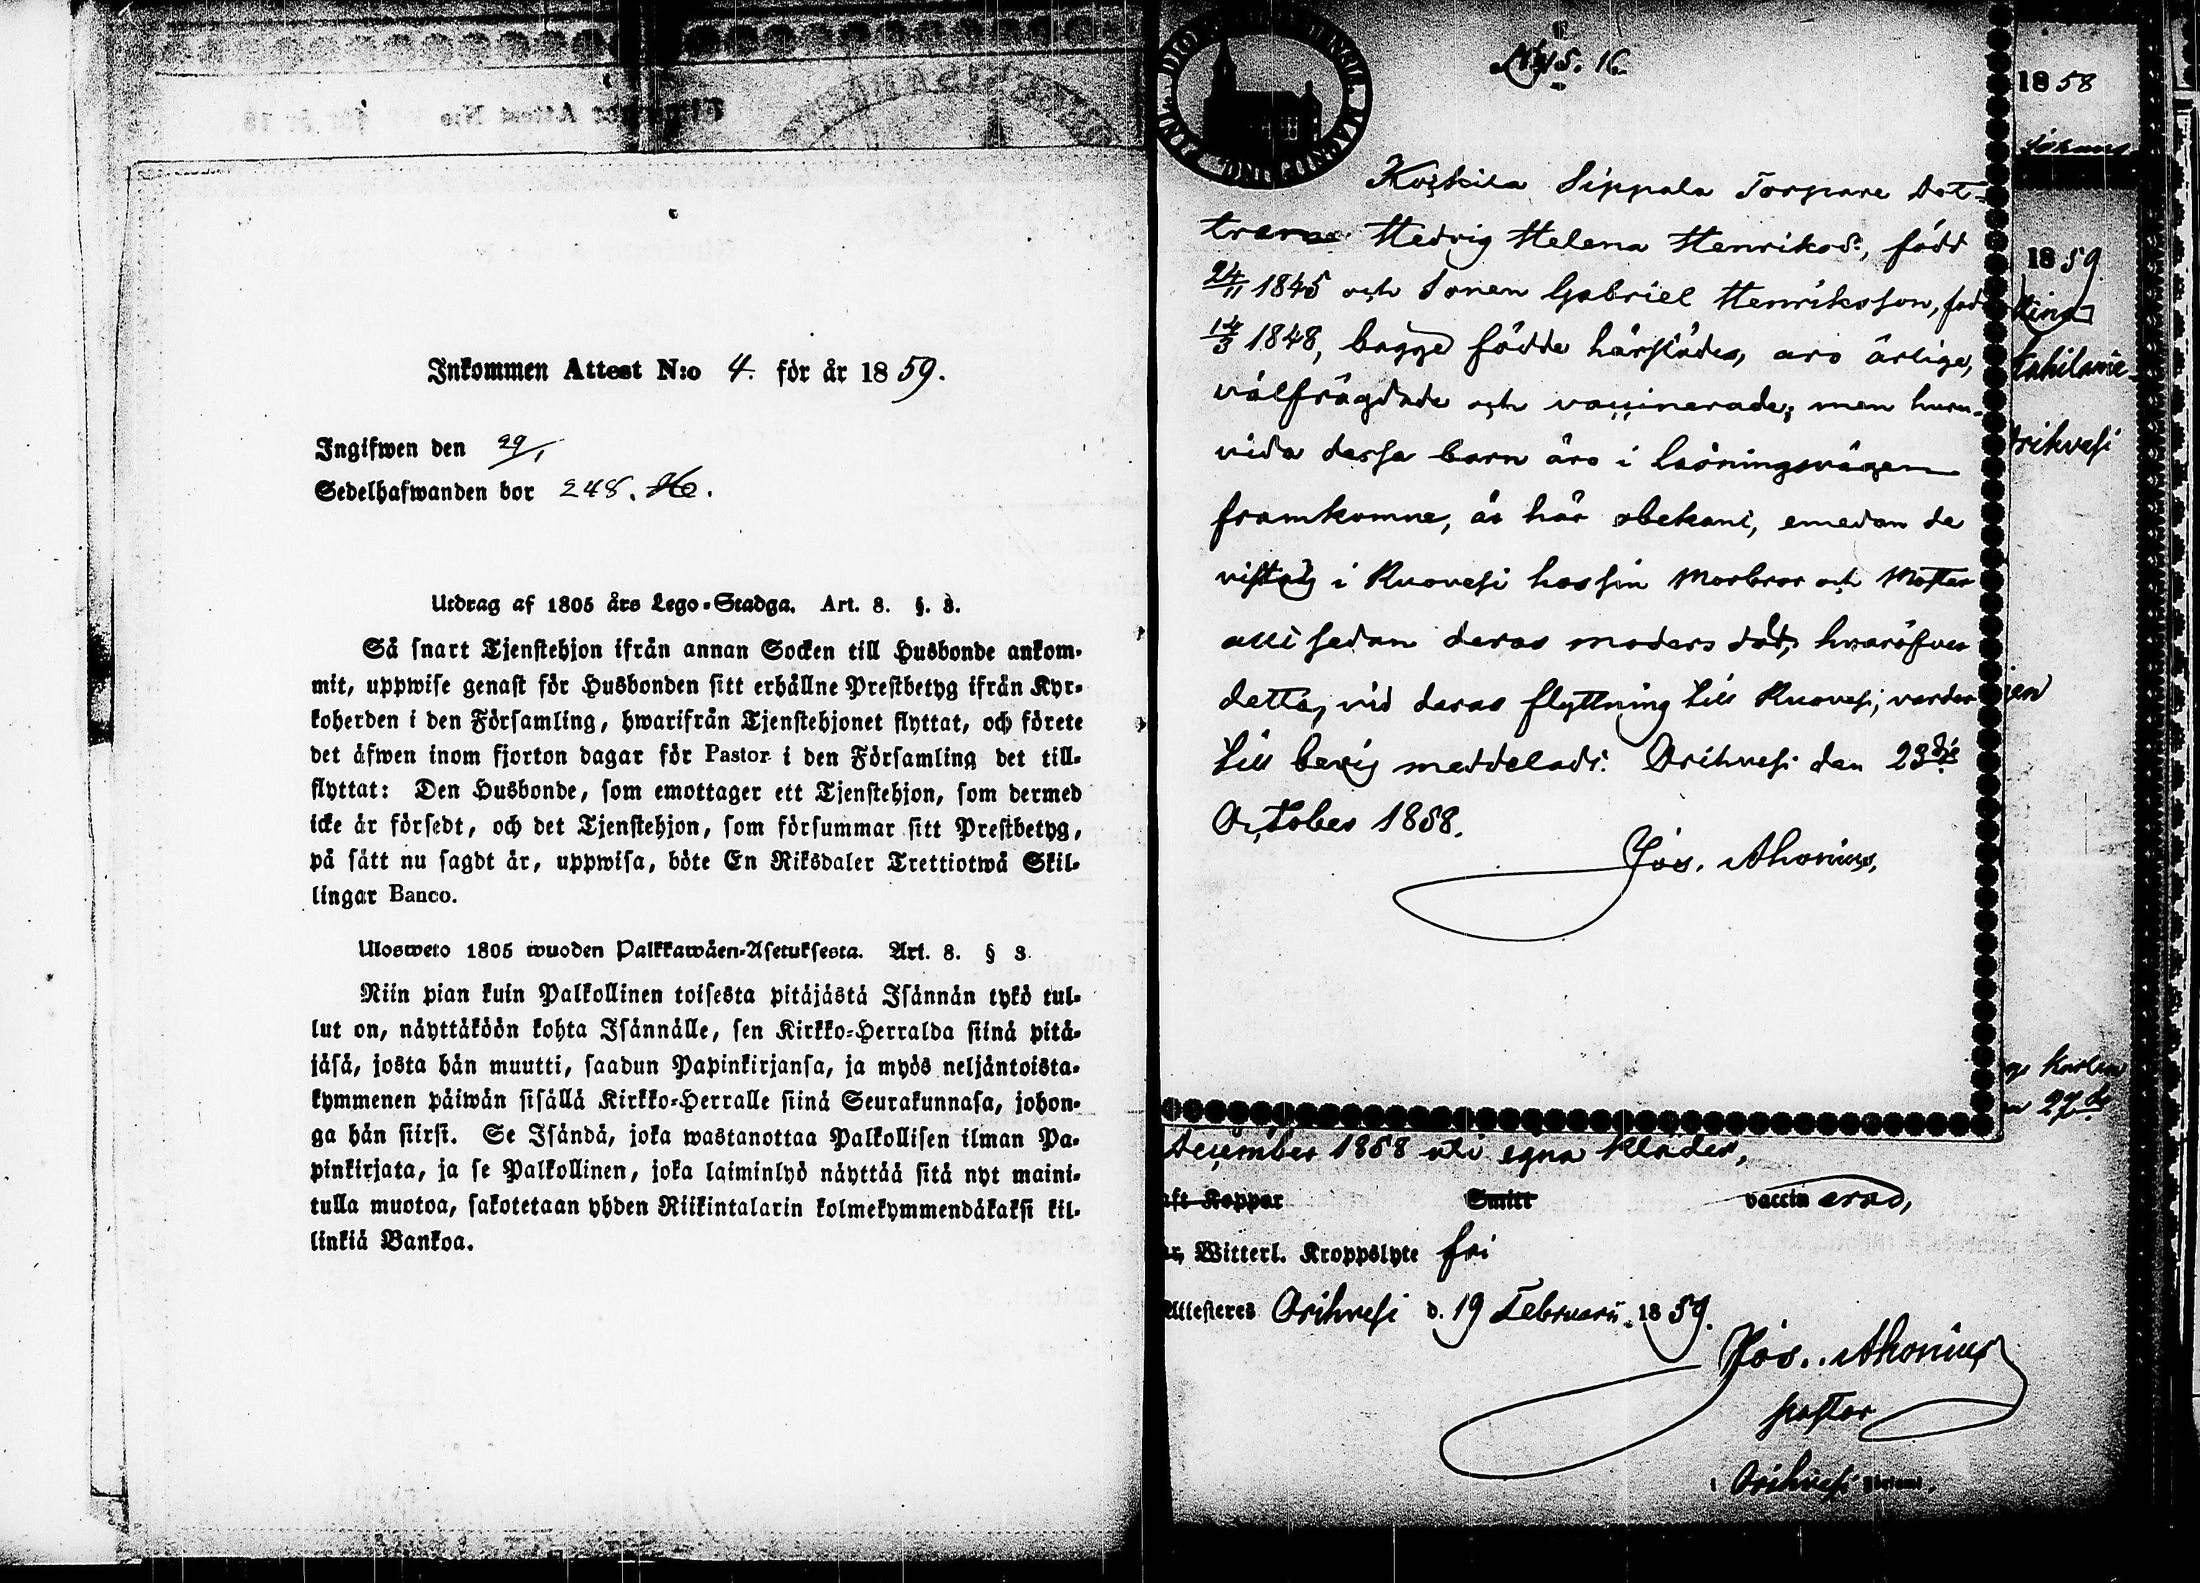 Inkommen Attest N:o 4. för år 1859.
Ingifwen den 29/1
Sedelhafwanden bor 248.
Utdrag af 1805 års Lego-Stadga. Art. 8. §. 3.
Så snart Tjenstehjon ifrån annan Socken till Husbonde ankom-
mit, uppwise genast för Husbonden sitt erhållne Prestbetyg ifrån Kyr-
koherden i den Församling, hwarifrån Tjenstehjonet flyttat, och förete
det äfwen inom fjorton dagar för Pastor i den Församling det till-
flyttat: Den Husbonde, som emottager ett Tjenstehjon, som dermed
icke är försedt, och det Tjenstehjon, som försummar sitt Prestbetyg,
på sätt nu sagdt är, uppwisa, böte En Riksdaler Trettiotwå Skil-
lingar Banco.
Ulosweto 1805 wuoden Palkkawäen-Asetuksesta. Art. 8. § 3
Niin pian kuin Palkollinen toisesta pitäjästä Isännän tykö tul-
lut on, näyttäköön kohta Isännälle, sen Kirkko-Herralda siinä pitä-
jäsä, josta hän muutti, saadun Papinkirjansa, ja myös neljäntoista-
kymmenen päiwän sisällä Kirkko-Herralle siinä Seurakunnasa, johon-
ga hän siirsi. Se Isändä, joka wastanottaa Palkollisen ilman Pa-
pinkirjata, ja se Palkollinen, joka laiminlyö näyttää sitä nyt maini-
tulla muotoa, sakotetaan yhden Riikintalarin kolmekymmendäkaksi kil-
linkiä Bankoa.
16.
Koskila Sippala Torpare Dot-
tren Hedvig Helena Henriksd:, född
24/11 1845 och Sonen Gabriel Henriksson, född
14/3 1848, bägge födde härstädes, äro ärlige,
välfrägdade och vaccinerade; men huru-
vida dessa barn äro i läsningsvägen
framkomne, är här obekant, emedan de
vistats i Ruovesi hos sin Morbror och Moster
allt sedan deras moders död, hvaröfver
detta, vid deras flyttning till Ruovesi, varder
till bevis meddeladt. Orihvesi den 23die
October 1858.
Jos. Ahonius.
December 1858 uti egna kläder,
aft Koppor Smitt vaccinerad,
Witterl. Kroppslyte fri
Attesteres Orihvesi d. 19 Februarii 1859.
Jos. Ahonius
pastor
i Orihvesi
1858
Johans
1859
Orihvesi
27de